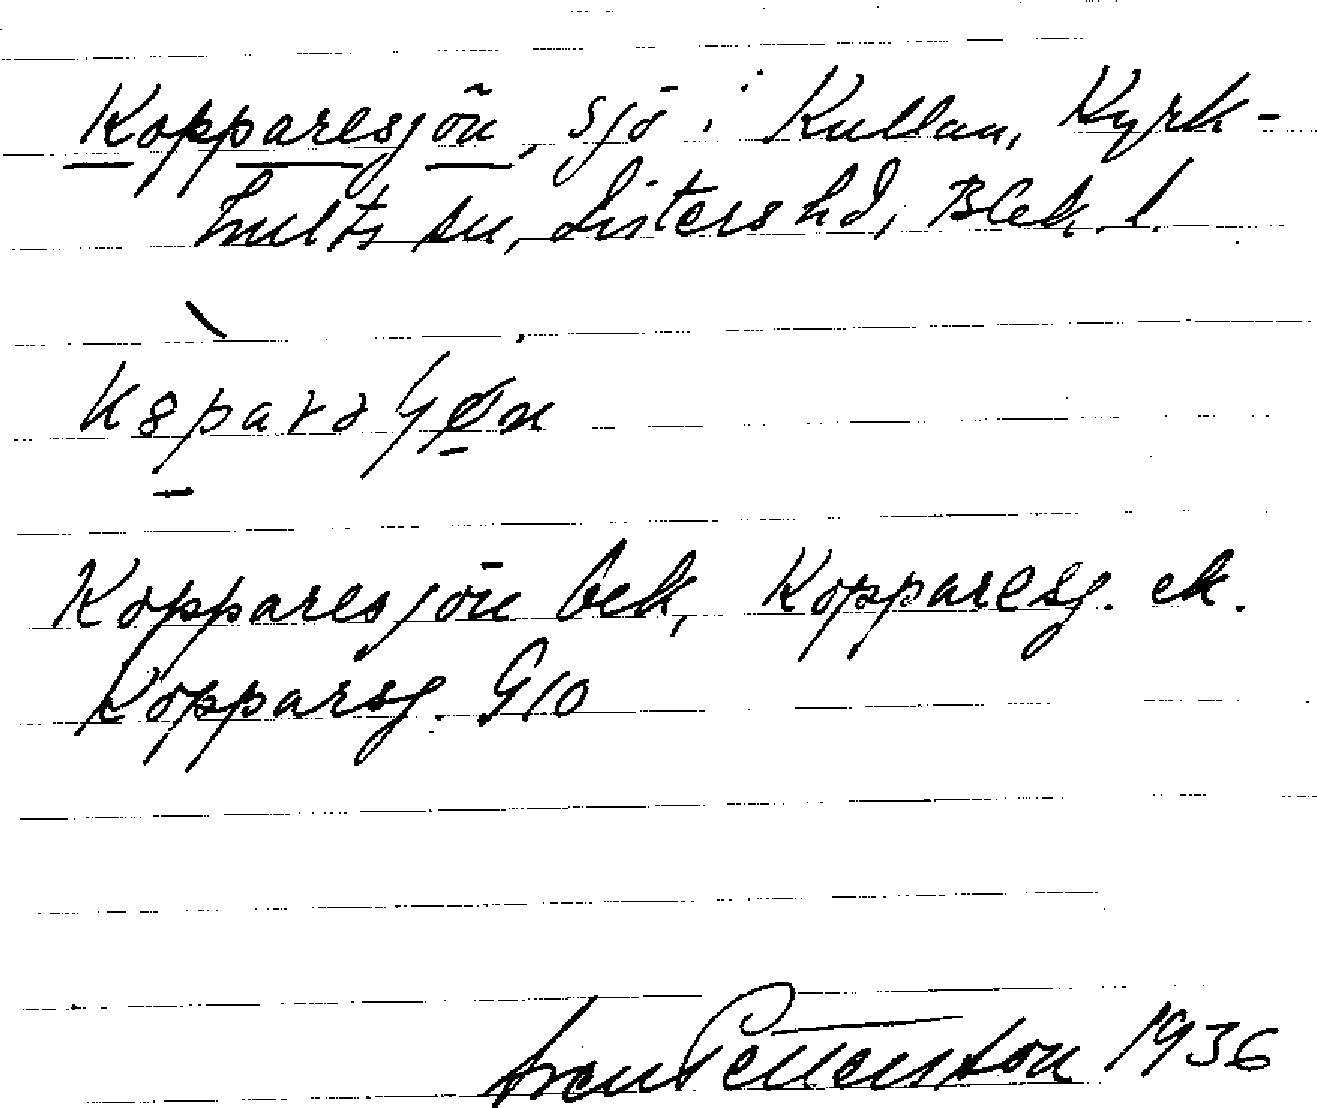 Kopparesjön, sjö i Kullan, Kyrk-
hults sn, Listers hd, Blek. l.
Kopparesjön bek, Kopparesj. ek.
Kopparsj. G10
Sven Petterson 1936